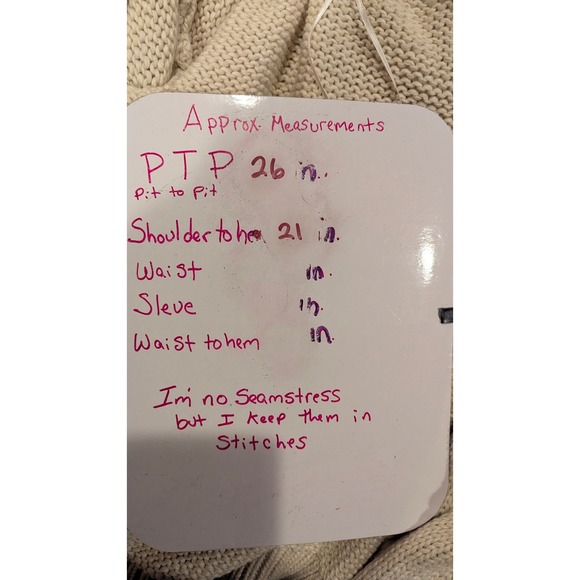 Approx. Measurements
PTP 26 in.
Pit to Pit
Shoulder to hem 21 in.
Waist in.
Sleve in.
Waist to hem in.
I'm no seamstress
but I keep them in
Stitches